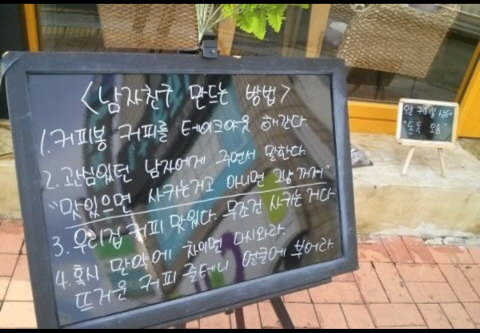 <남자친구 만드는 방법>
1. 커피봉 커피를 테이크아웃 해간다.
2. 관심있던 남자에게 주면서 말한다.
"맛있으면 사귀는거고 아니면 그냥 꺼져"
3. 우리집 커피 맛있다. 무조건 사귀는 거다.
4. 혹시 만약에 차이면 다시와라.
뜨거운 커피 줄테니 얼굴에 부어라.